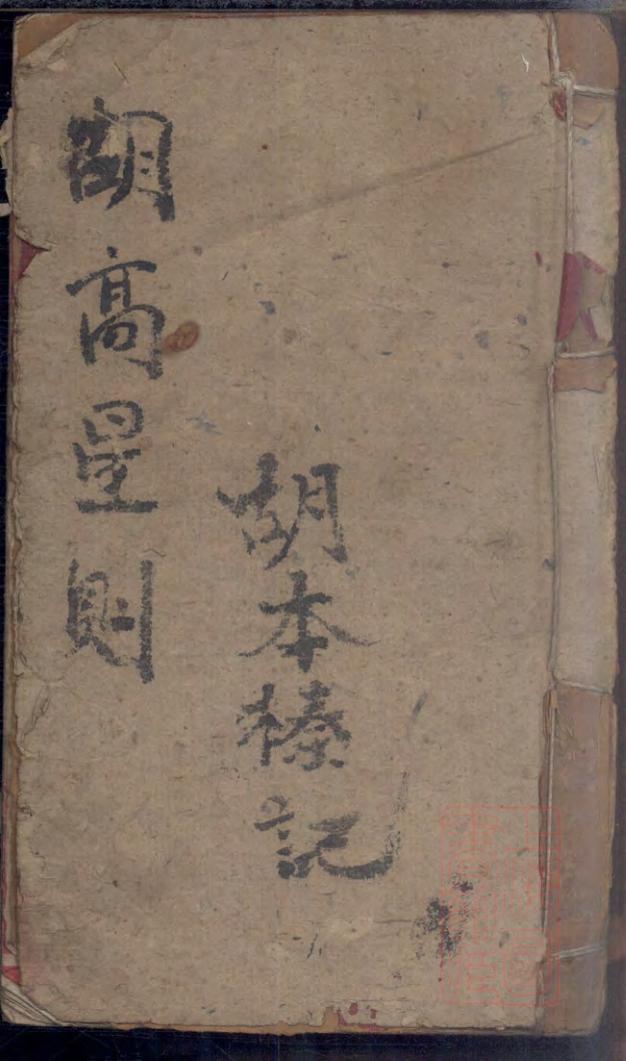 胡本榛記
胡高星則